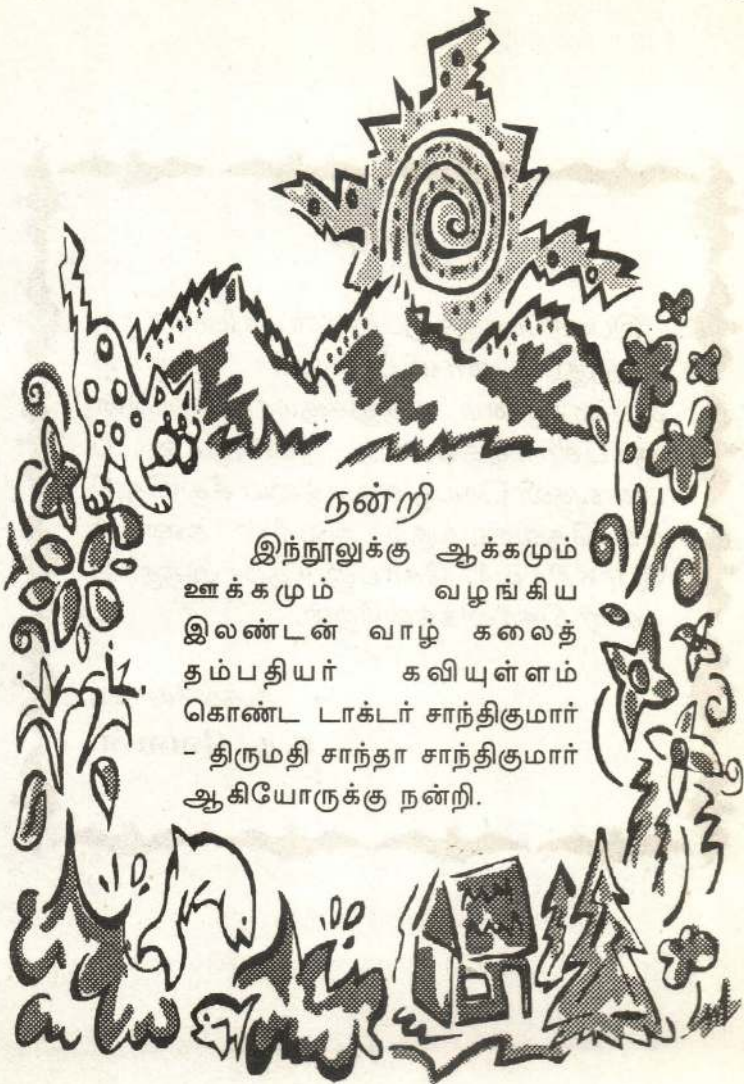 நன்றி
இந்நூலுக்கு ஆக்கமும்
ஊக்கமும் வழங்கிய
இலண்டன் வாழ் கலைத்
தம்பதியர் கவியுள்ளம்
கொண்ட டாக்டர் சாந்திகுமார்
- திருமதி சாந்தா சாந்திகுமார்
ஆகியோருக்கு நன்றி.